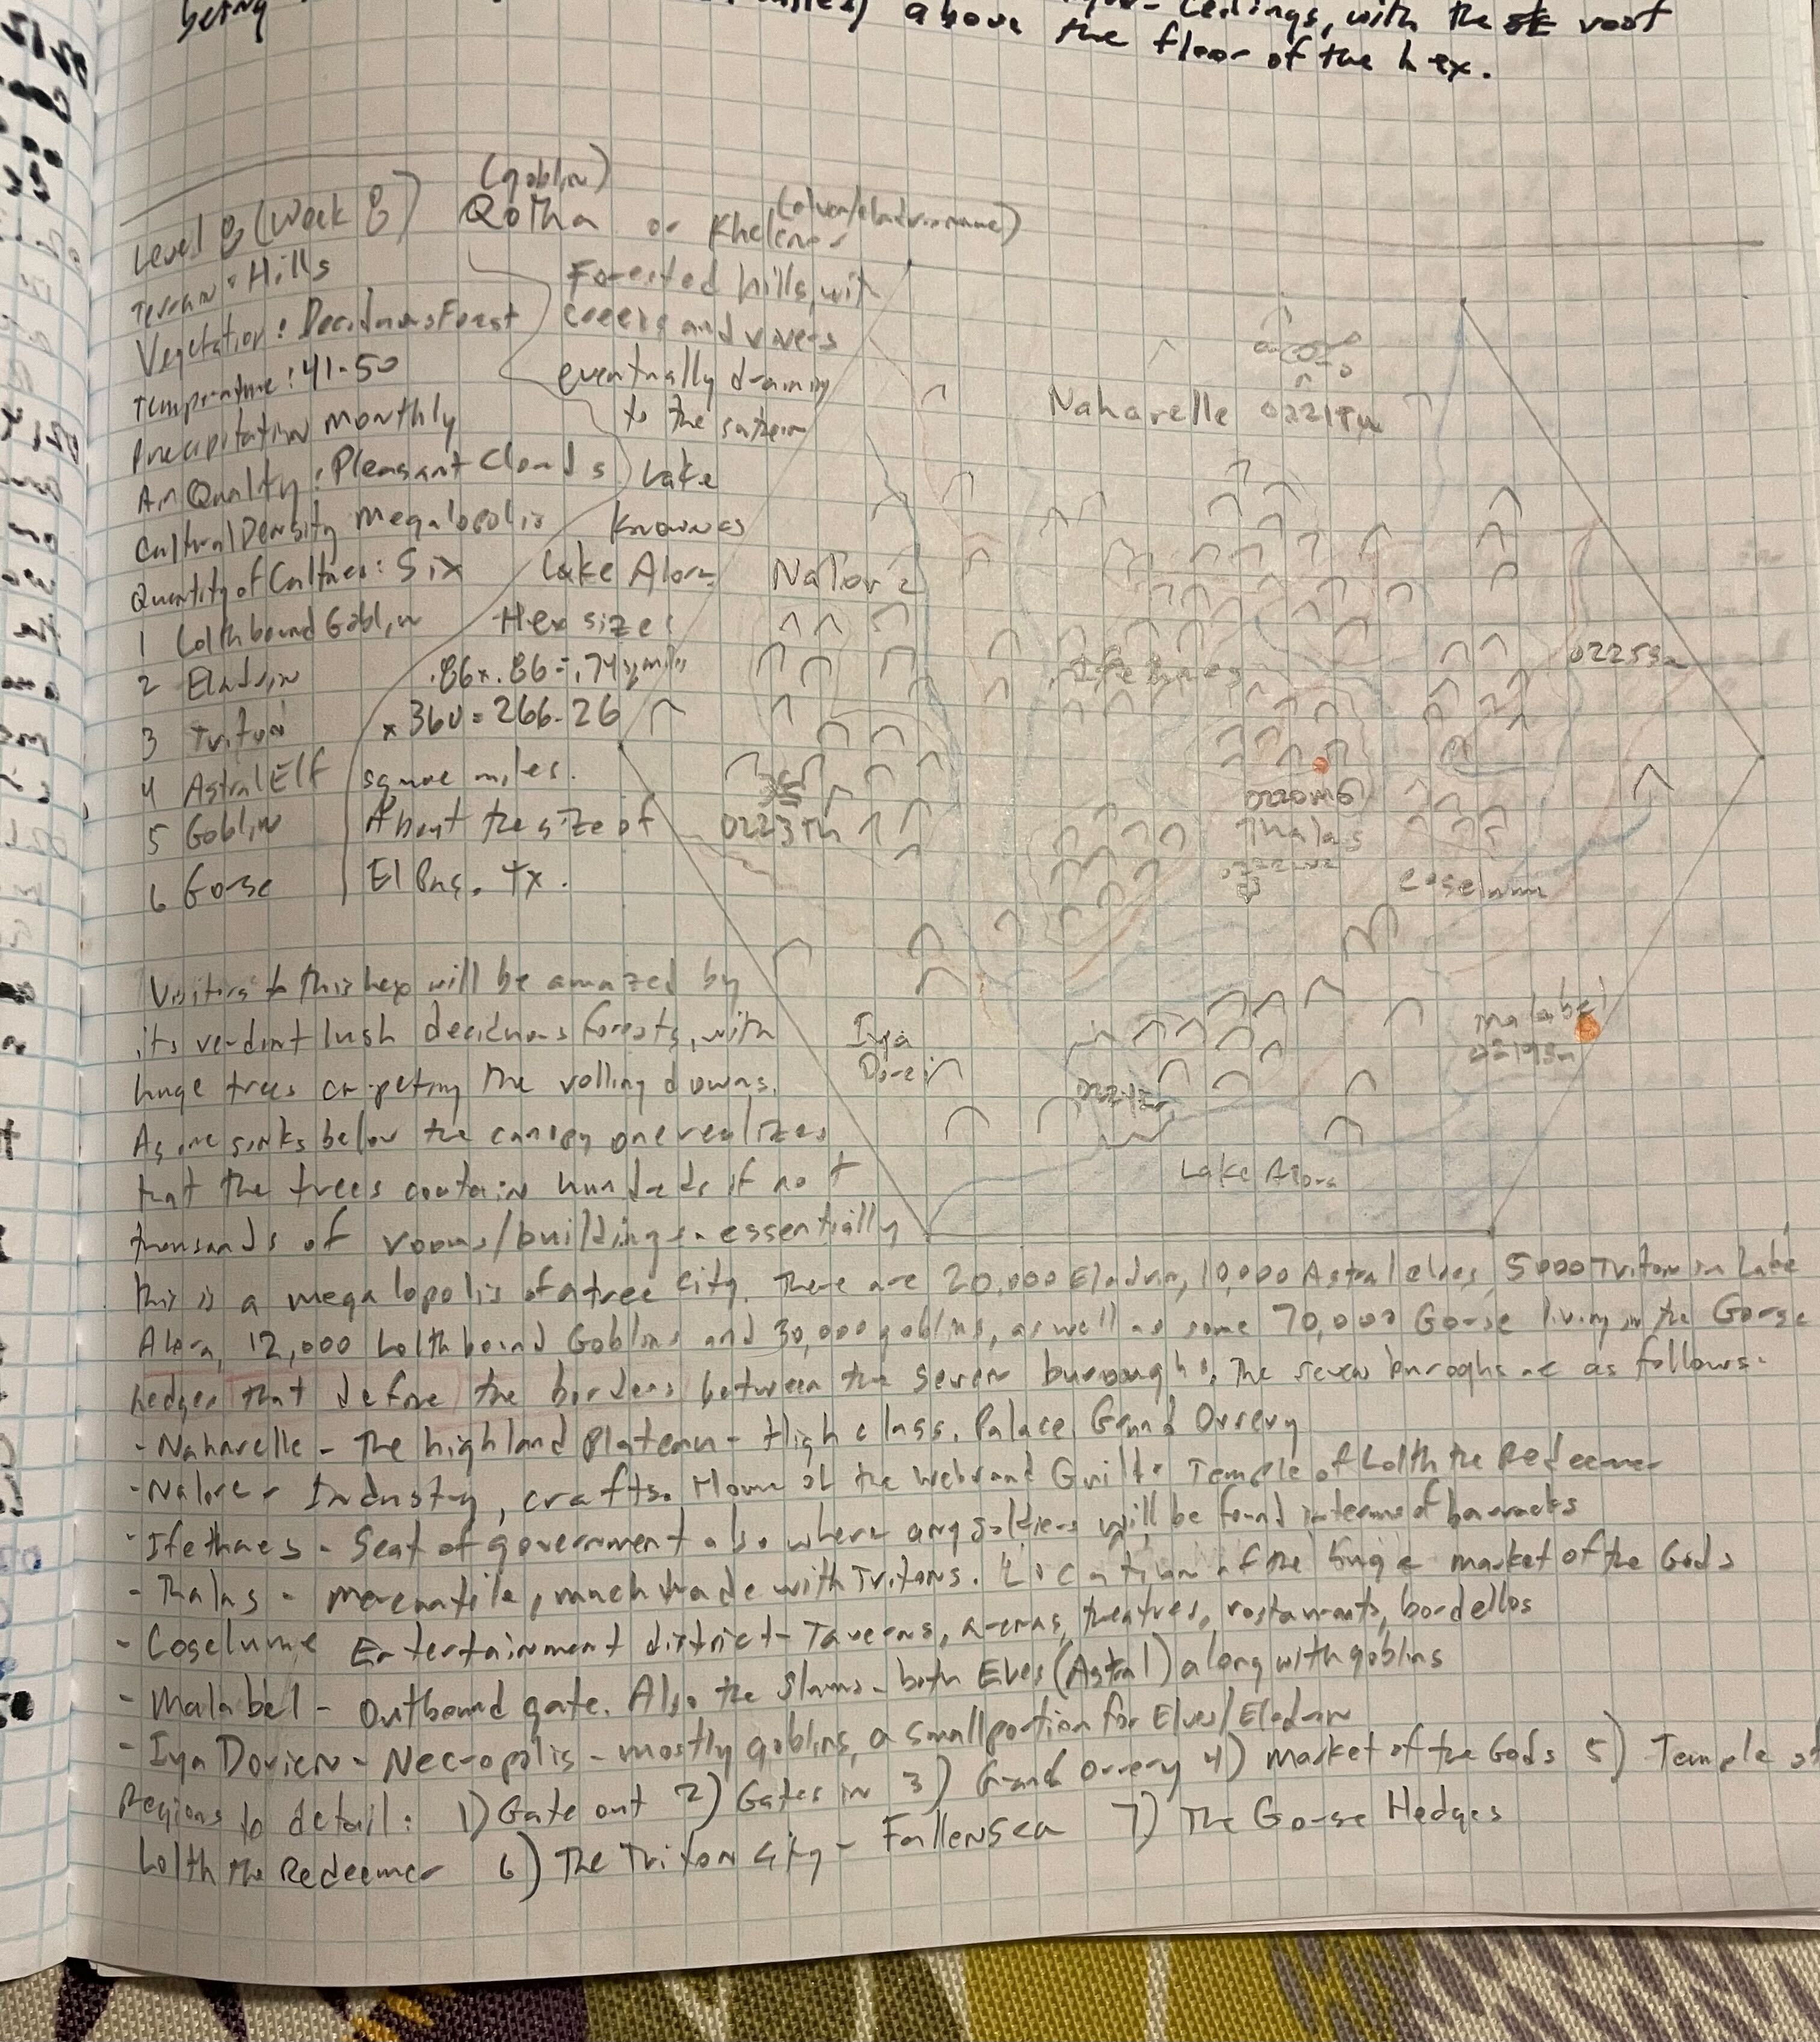 being
above
ceilings, with the roof
the floor of the hex.
(goblin)
Level 8 (Week 8) Qotha or
Terrain: Hills
Vegetation: Deciduous Forest
Temperature: 41-50
Precipitation monthly
Air Quality: Pleasant Clouds
Cultural Density Megalopolis
Quantity of Cultures: Six
1 Lolthbound Goblin
2 Eladrin
3 Triton
4 Astral Elf
5 Goblin
6 Gorse
Forested hills, with
creeks and rivers
eventually draining
to the southern
Lake
known as
Lake Alora
Hex size:
.86 x .86 = .74 sq miles
x 360 = 266.26
square miles.
About the size of
El Paso, Tx.
Naharelle
Nalore
02253a
0223Th
0220MG
Thalas
Coselume
Malabel
Iya
Dorien
Lake Alora
Visitors to this hex will be amazed by
its verdant lush deciduous forests, with
huge trees carpeting the rolling downs.
As one sinks below the canopy one realizes
that the trees contain hundreds if not
thousands of rooms/buildings - essentially
this is a megalopolis of a tree city. There are 20,000 Eladrin, 10,000 Astral elves, 5000 Triton in Lake
Alora, 12,000 Lolthbound Goblins and 30,000 goblins, as well as some 70,000 Gorse living in the Gorse
hedges that define the borders between the seven buroughs. The seven buroghs are as follows:
- Naharelle - The highland Plateau - High class. Palace. Grand Orrery
- Nalore - Industry, crafts. Home of the Guild. Temple of Lolth the Redeemer
- Ifethaes - Seat of government also where any soldiers will be found in terms of barracks
- Thalas - mercantile, much trade with Tritons. Location of the huge market of the Gods
- Coselume Entertainment district - Taverns, arenas, theatres, restaurants, bordellos
- Malabel - Outbound gate. Also the slums - both Elves (Astral) along with goblins
- Iya Dorien - Necropolis - mostly goblins, a small portion for Elves/Eladrin
Regions to detail: 1) Gate out 2) Gates in 3) Grand Orrery 4) Market of the Gods 5) Temple of
Lolth the Redeemer 6) The Triton City - Fallensea 7) The Gorse Hedges